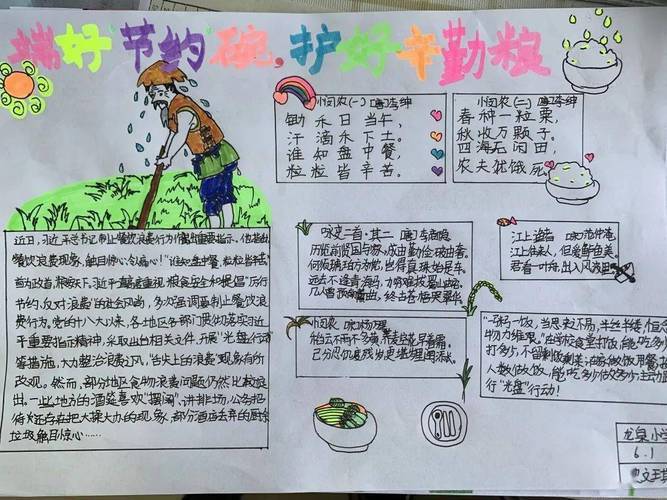 端好"节约"碗,护好辛勤粒
小悯农(一) [唐]李绅
锄禾日当午,
汗滴禾下土。
谁知盘中餐,
粒粒皆辛苦。
小悯农(二) [唐]李绅
春种一粒粟,
秋收万颗子。
四海无闲田,
农夫犹饿死
近日,习近平总书记对制止餐饮浪费行为作出重要指示。他指出,
餐饮浪费现象,触目惊心、令人痛心!"谁知盘中餐,粒粒皆辛苦"
习近平一直高度重视粮食安全和提倡"厉行
节约、反对浪费"的社会风尚,多次强调要制止餐饮浪
费行为。党的十八大以来,各地区各部门贯彻落实习近
平重要指示精神,采取出台相关文件、开展"光盘行动"
等措施,大力整治浪费之风,"舌尖上的浪费"现象有所
改观。然而,部分地区食物浪费问题仍然比较突
出。一些地方的酒宴喜欢"摆阔"、讲排场,公务招
待还存在把大操大办的现象,部分酒店丢弃的厨余
垃圾触目惊心……
咏史二首·其二 [唐]李商隐
历览前贤国与家,成由勤俭破由奢。
何须琥珀方为枕,岂得真珠始是车。
远去不逢青海马,力穷难拔蜀山蛇。
几人曾预南薰曲,终古苍梧哭翠华
江上渔者 [宋]范仲淹
江上往来人,但爱鲈鱼美。
君看一叶舟,出入风波里
小悯农 [宋]杨万里
稻云不雨不多黄,荞麦空花早着霜。
已分忍饥度残岁
"一粥一饭,当思来处不易,半丝半缕,恒念
物力维艰。"在学校食堂打饭,能吃多少
打多少,不留剩饭剩菜;在家做饭用餐
人数做饭,能吃多少做多少;主动厉
行"光盘"行动!
龙泉小学
6.1